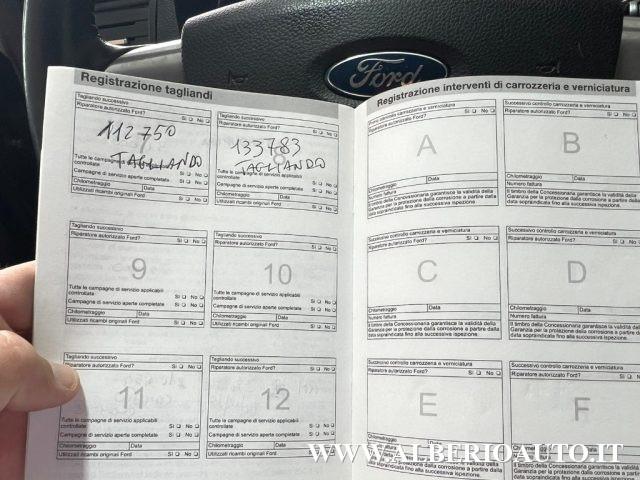 Ford
Registrazione tagliandi
Tagliando successivo
Riparatore autorizzato Ford? Si No
112 750
TAGLIANDO
Tutte le campagne
controllate Si No
Campagne di servizio aperte completate Si No
Chilometraggio Data
Utilizzati ricambi originali Ford Si No
Tagliando successivo
Riparatore autorizzato Ford? Si No
133783
8
TAGLIANDO
Tutte le campagne di servizio applicabili
controllate Si No
Campagne di servizio aperte completate Si No
Chilometraggio Data
Utilizzati ricambi originali Ford Si No
Tagliando successivo
Riparatore autorizzato Ford? Si No
9
Tutte le campagne di servizio applicabili
controllate Si No
Campagne di servizio aperte completate Si No
Chilometraggio Data
Utilizzati ricambi originali Ford Si No
Tagliando successivo
Riparatore autorizzato Ford? Si No
10
Tutte le campagne di servizio applicabili
controllate Si No
Campagne di servizio aperte completate Si No
Chilometraggio Data
Utilizzati ricambi originali Ford Si No
Tagliando successivo
Riparatore autorizzato Ford? Si No
11
Tutte le campagne di servizio applicabili
controllate Si No
Campagne di servizio aperte completate Si No
Chilometraggio Data
Utilizzati ricambi originali Ford Si No
Tagliando successivo
Riparatore autorizzato Ford? Si No
12
Tutte le campagne di servizio applicabili
controllate Si No
Campagne di servizio aperte completate Si No
Chilometraggio Data
Utilizzati ricambi originali Ford Si No
Registrazione interventi di carrozzeria e verniciatura
Primo controllo carrozzeria e verniciatura
Riparatore autorizzato Ford? Si No
A
Chilometraggio Data
Numero fattura
Il timbro della Concessionaria garantisce la validità della
Garanzia per la protezione dalla corrosione a partire dalla
data sopraindicata fino alla successiva ispezione.
Successivo controllo carrozzeria e verniciatura
Riparatore autorizzato Ford? Si No
B
Chilometraggio Data
Numero fattura
Il timbro della Concessionaria garantisce la validità della
Garanzia per la protezione dalla corrosione a partire dalla
data sopraindicata fino alla successiva ispezione.
Successivo controllo carrozzeria e verniciatura
Riparatore autorizzato Ford? Si No
C
Chilometraggio Data
Numero fattura
Il timbro della Concessionaria garantisce la validità della
Garanzia per la protezione dalla corrosione a partire dalla
data sopraindicata fino alla successiva ispezione.
Successivo controllo carrozzeria e verniciatura
Riparatore autorizzato Ford? Si No
D
Chilometraggio Data
Numero fattura
Il timbro della Concessionaria garantisce la validità della
Garanzia per la protezione dalla corrosione a partire dalla
data sopraindicata fino alla successiva ispezione.
Successivo controllo carrozzeria e verniciatura
Riparatore autorizzato Ford? Si No
E
Chilometraggio
Il timbro della Concessionaria garantisce la validità della
Garanzia per la protezione dalla corrosione a partire dalla
data sopraindicata fino alla successiva ispezione.
Successivo controllo carrozzeria e verniciatura
Riparatore autorizzato Ford? Si No
F
Il timbro della Concessionaria garantisce la validità della
Garanzia per la protezione dalla corrosione a partire dalla
data sopraindicata fino alla successiva ispezione.
WWW.ALBERIOAUTO.IT